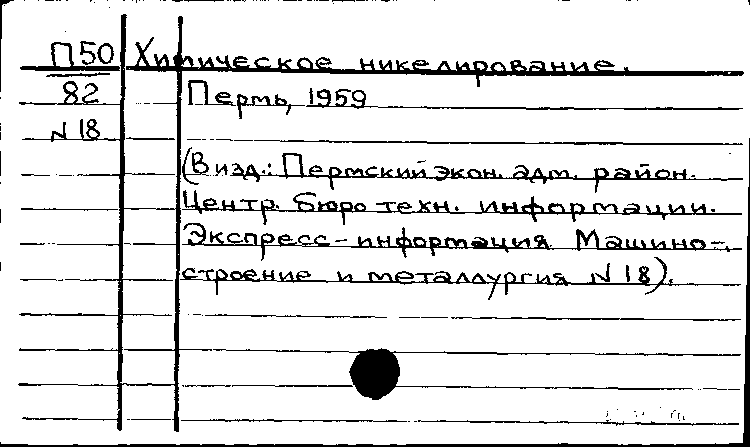 П50 Химическое никелирование.
82 Пермь, 1959
N 18
(В изд.: Пермский экон. адм. район.
Центр. бюро техн. информации.
Экспресс-информация Машино-
строение и металлургия N 18).